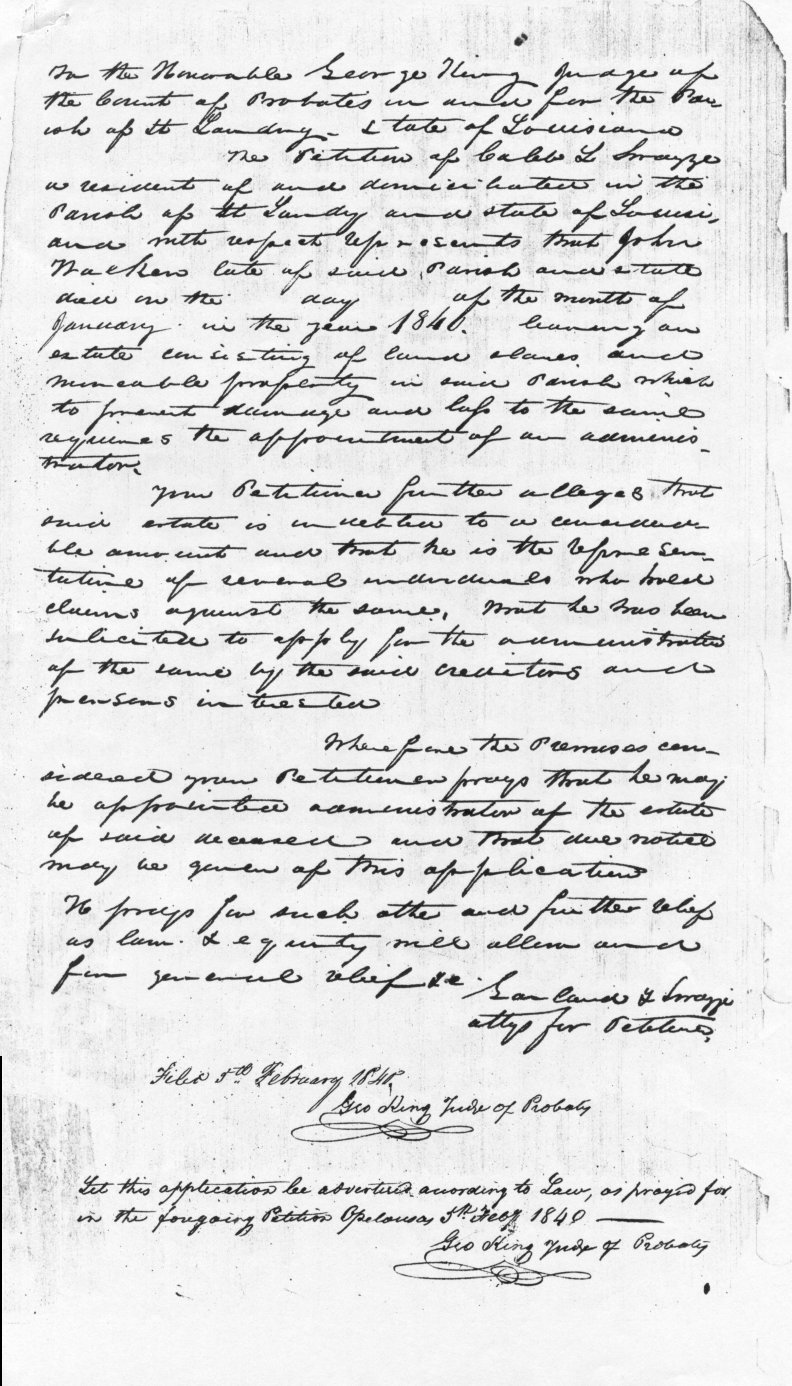 To the Honorable George King Judge of
the Court of Probates in and for the Par-
ish of St Landry - State of Louisiana
The Petition of Caleb L Swayze
a resident of and domiciliated in the
Parish of St Landry and state of Louisi,
ana with respect represents that John
late of said Parish and state
died on the day of the month of
January in the year 1840. leaving an
estate consisting of land slaves and
moveable property in said Parish which
to prevent damage and loss to the same
requires the appointment of an adminis-
trator.
your Petitioner further alleges that
said estate is indebted to a considera
ble amount and that he is the represen-
tative of several individuals who hold
claims against the same, that he has been
solicited to apply for the administration
of the same by the said creditors and
persons interested
Wherefore the Premises con-
sidered your Petitioner prays that he may
be appointed administrator of the estate
of said deceased and that due notice
may be given of this application
He prays for such other and further relief
as law & equity will allow and
for general relief &c.
Garland & Swayze
attys for Petitioner,
Filed 5th February 1840.
Geo King Judge of Probates
Let this application be advertised according to Law, as prayed for
in the foregoing Petition Opelousas 5th Feby 1840 —
Geo King Judge of Probates